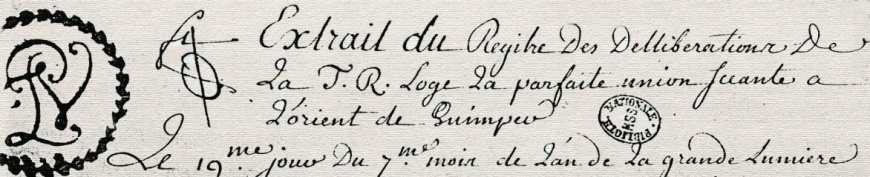 Extrait du Regitre Des Delliberations De
La T. R. Loge La parfaite union sceante a
L'orient de Quimper
NATIONALE
MSS
Le 19me jour Du 7me mois de L'an de La grande Lumiere